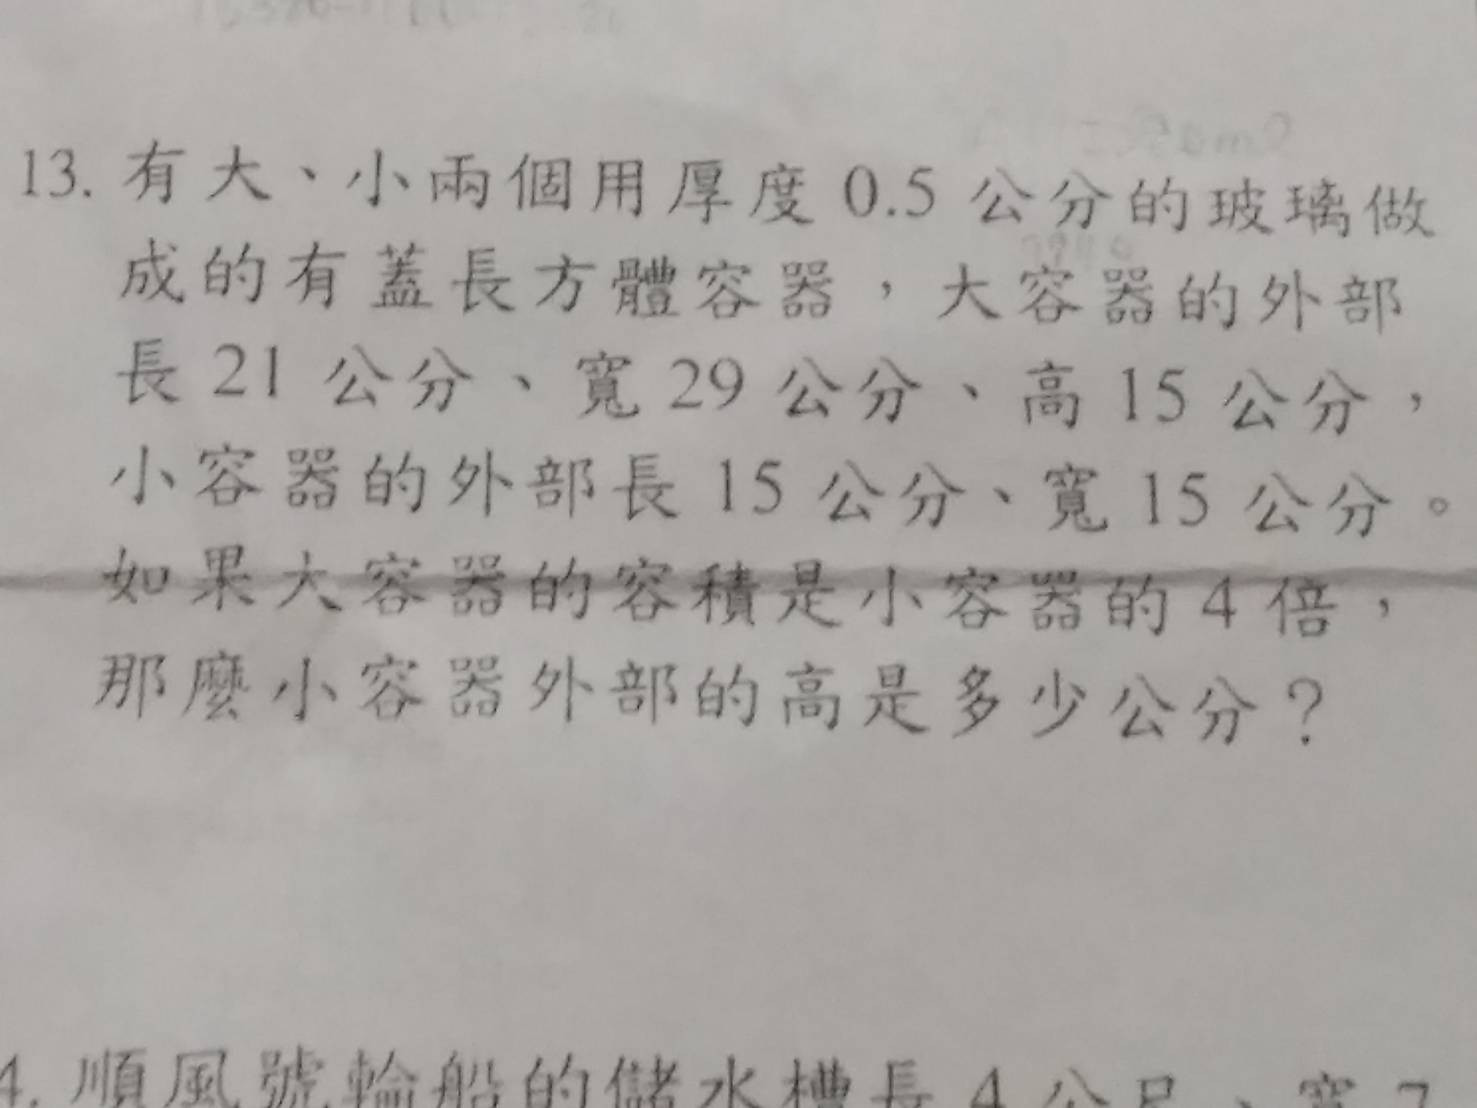 13. 有大、小兩個用厚度 0.5 公分的玻璃做
成的有蓋長方體容器，大容器的外部
長 21 公分、寬 29 公分、高 15 公分，
小容器的外部長 15 公分、寬 15 公分。
如果大容器的容積是小容器的 4 倍，
那麼小容器外部的高是多少公分？
4. 順風號輪船的儲水槽長 4 公尺、寬 7